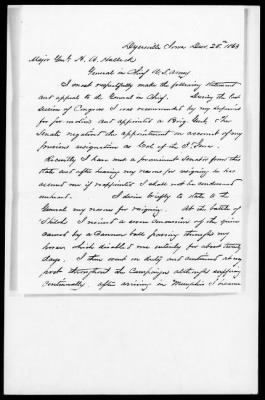 Dyersville Iowa Dec. 25th 1863
Major Genl. H. W. Halleck
General in Chief U.S. Army
I most respectfully make the following statement
and appeal to the General in Chief. During the last
session of Congress I was recommended by my superiors
for and appointed a Brig. Genl. The
Senate negatived the appointment on account of my
previous resignation as Col of the
Recently I have met a prominent Senator from this
State and after hearing my reasons for resigning he has
assured me if reappointed I shall not be condemned
unheard. I desire briefly to state to the
General my reasons for resigning. At the battle of
Shiloh I received a severe concussion of the spine
caused by a Cannon ball passing through my
horse which disabled me entirely for about twenty
days. I then went on duty and continued at my
post throughout the Campaign although suffering
continually. After arriving in Memphis I became